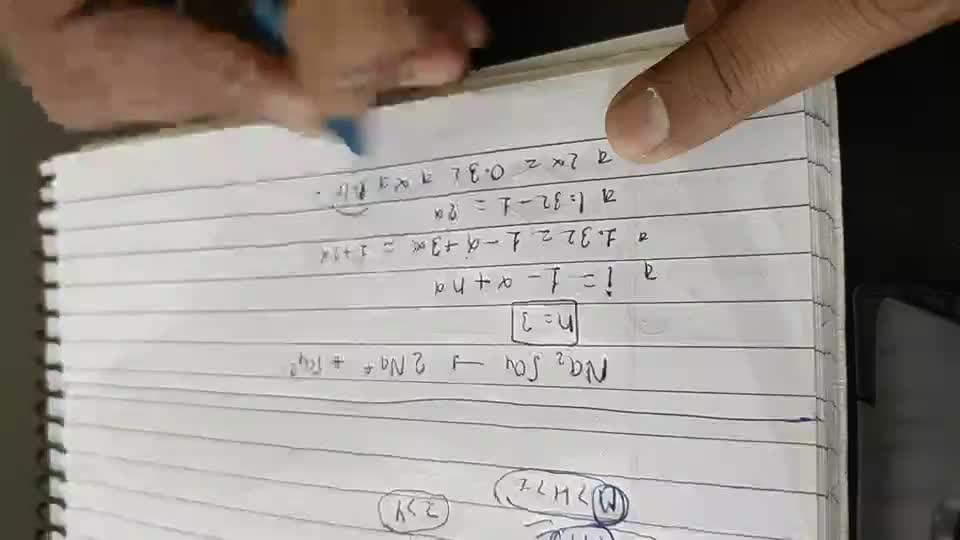 Na₂SO₄ → 2Na⁺ + SO₄²⁻
n = 3
i = 1 - α + nα
1.32 = 1 - α + 3α = 1 + 2α
1.32 - 1 = 2α
2α = 0.32
M > H > I
Z > Y